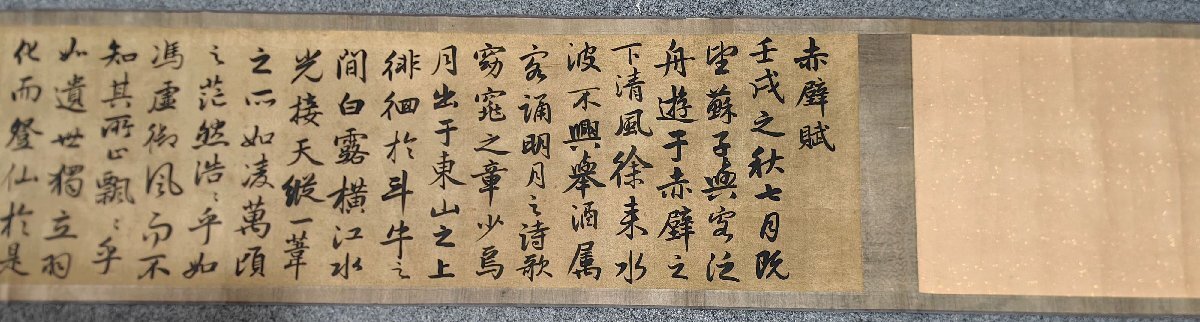 赤壁賦
壬戌之秋七月既
望蘇子與客泛
舟遊于赤壁之
下清風徐来水
波不興舉酒属
客誦明月之詩歌
窈窕之章少焉
月出于東山之上
徘徊於斗牛之
間白露橫江水
光接天縱一葦
之所如凌萬頃
之茫然浩〻乎如
馮虛御風而不
知其所止飄〻乎
如遺世獨立羽
化而登仙於是